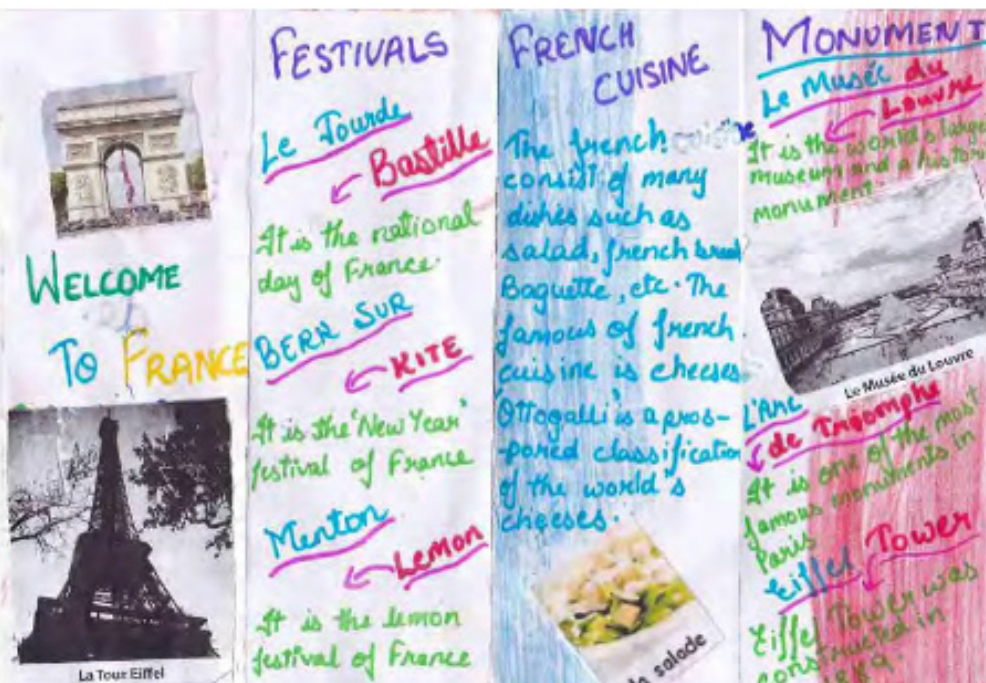 WELCOME
TO FRANCE
La Tour Eiffel
FESTIVALS
Le Tourde
Bastille
It is the national
day of France.
BERK SUR
KITE
It is the 'New Year'
festival of France
Menton
Lemon
It is the lemon
festival of France
FRENCH
CUISINE
The french cuisine
consist of many
dishes such as
salad, french bread
Baguette, etc. The
famous of french
cuisine is cheeses.
'Ottogalli' is a pros-
-pored classification
of the world's
cheeses.
la salade
MONUMENT
Le Musée du
Louvre
It is the world's large
museum and a histori
monument.
Le Musée du Louvre
L'Arc
de Triomphe
It is one of the most
famous monuments in
Paris
Eiffel Tower
Eiffel Tower was
constructed in